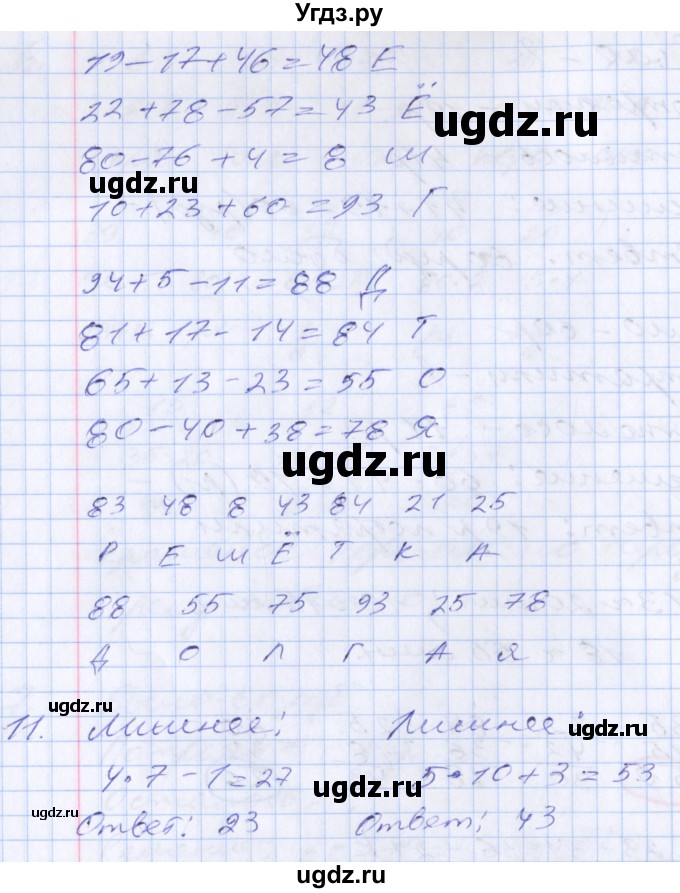 Угдз.ру
19 - 17 + 46 = 48 Е
22 + 78 - 57 = 43 Ё
ugdz.ru
80 - 76 + 4 = 8 Ш
ugdz.ru
10 + 23 + 60 = 93 Г
94 + 5 - 11 = 88 Д
81 + 17 - 14 = 84 Т
65 + 13 - 23 = 55 О
80 - 40 + 38 = 78 Я
ugdz.ru
83 48 8 43 84 21 25
Р Е Ш Ё Т К А
88 55 75 93 25 78
Д О Л Г А Я
ugdz.ru
11. Лишнее: Лишнее:
ugdz.ru
4 · 7 - 1 = 27 5 · 10 + 3 = 53
ugdz.ru
ugdz.ru
Ответ: 23 Ответ: 43